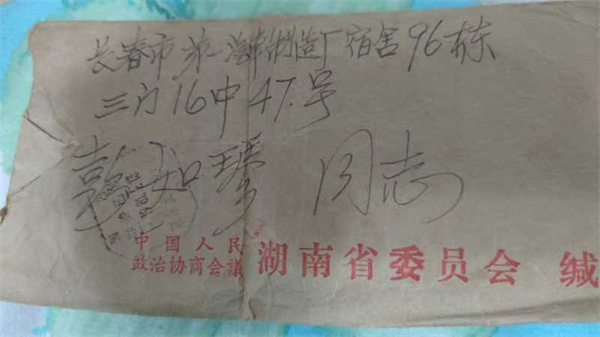 长春市第一汽车制造厂宿舍96栋
三门16中47号
彭如 同志
中国人民
政治协商会議
湖南省委员会 缄